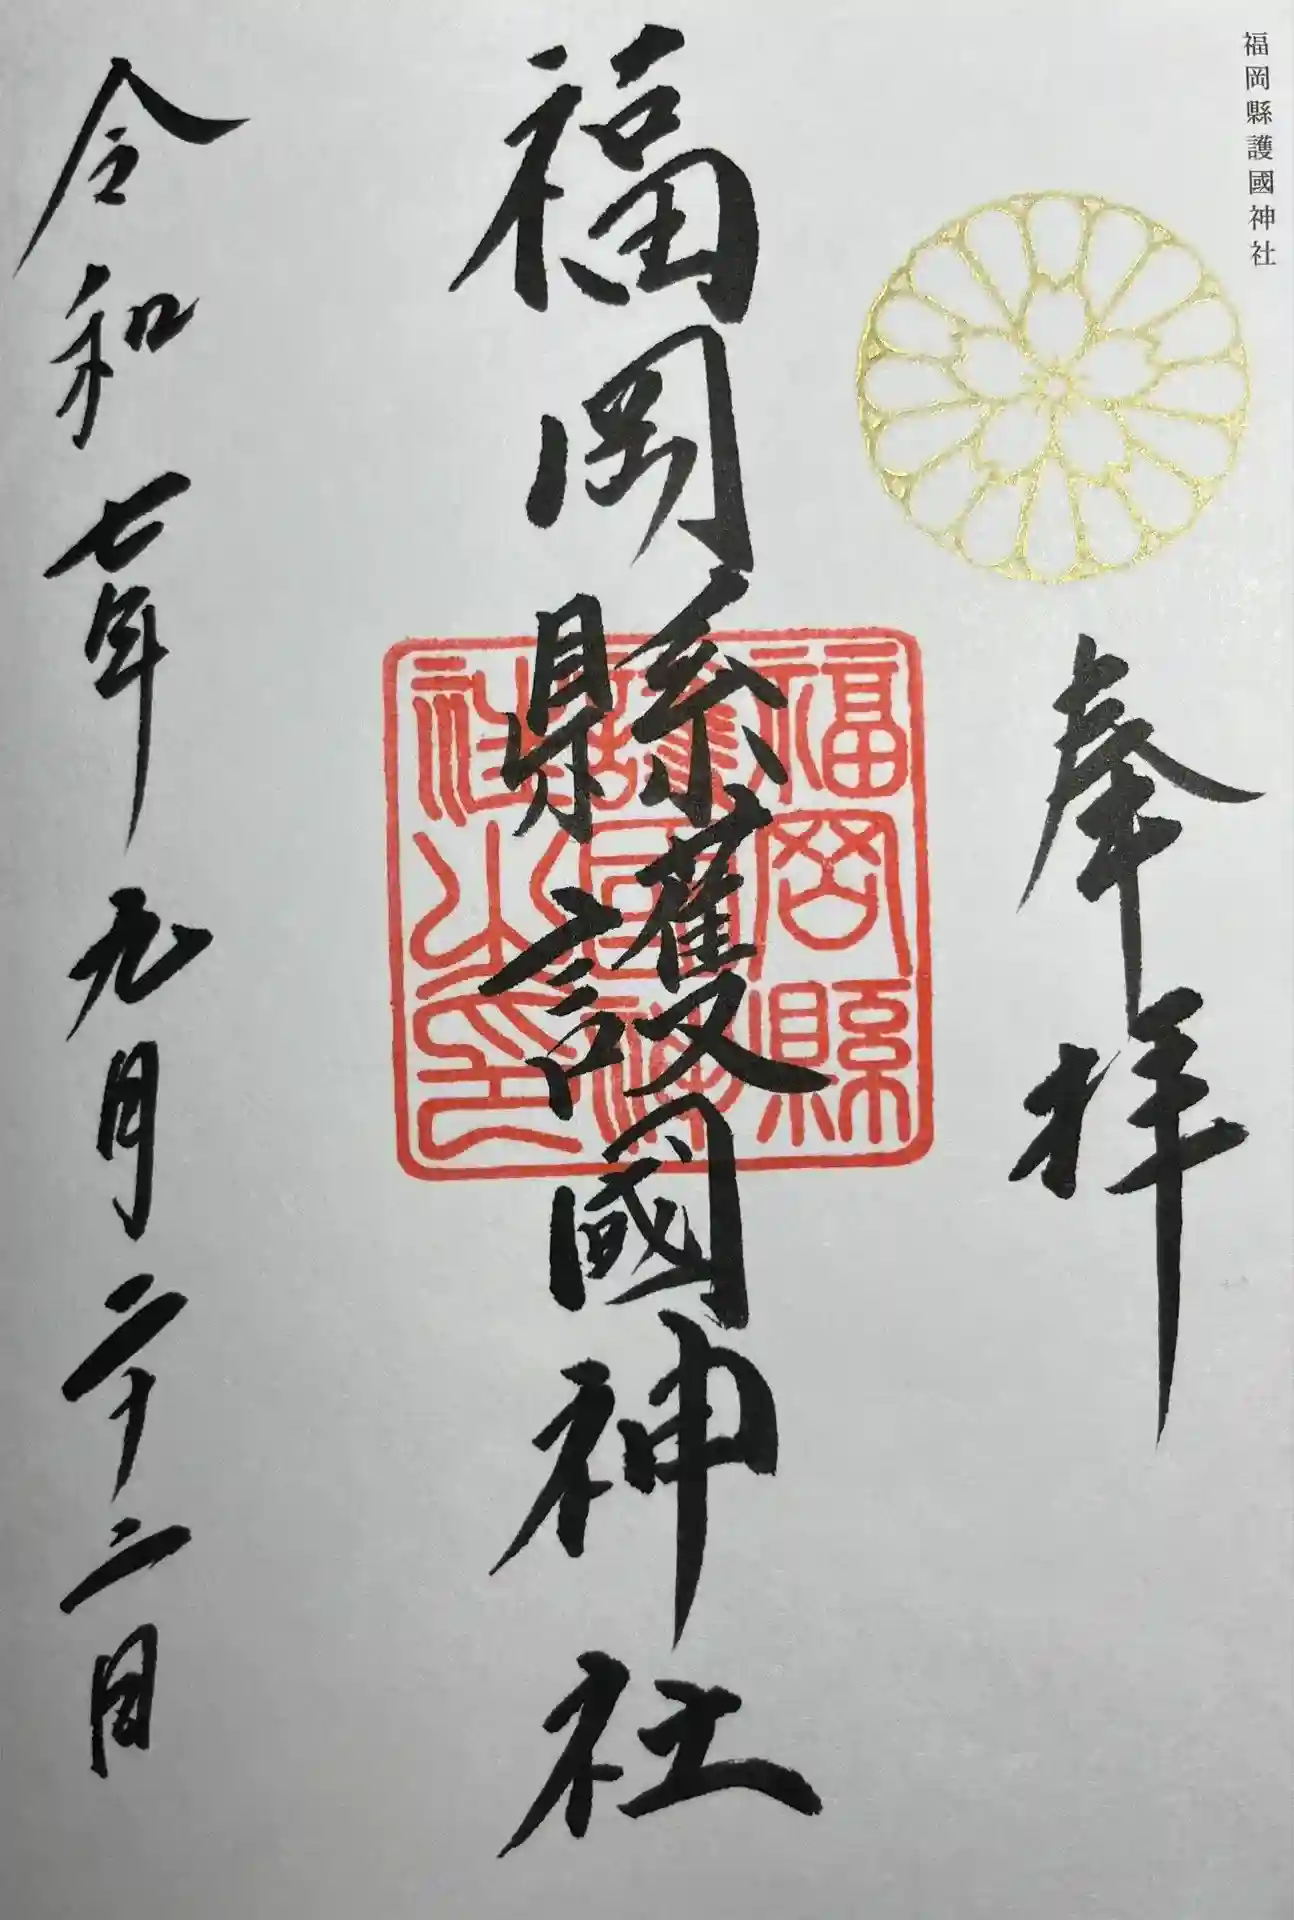 福岡縣護國神社
奉拝
福岡縣護國神社
福岡縣
護国神
社之印
令和七年九月二十二日